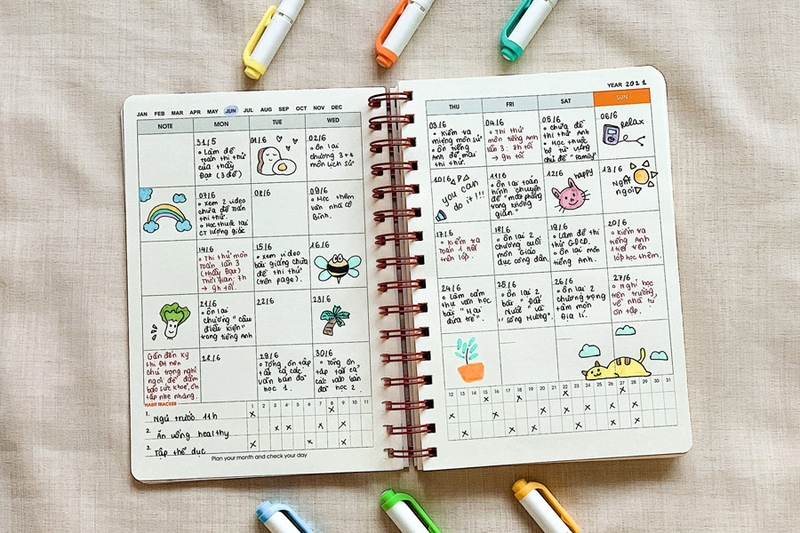 JAN FEB MAR APR MAY JUN JUL AUG SEP OCT NOV DEC
NOTE MON TUE WED
31/5
• Làm đề
toán thi thử
của thầy
Đạo (3 đề)
01/6
02/6
• Ôn lại
chương 3+4
môn lịch sử
07/6
• Xem 2 video
chữa đề toán
thi thử.
• Học thuộc lại
CT lượng giác
08/6
09/6
• Học thêm
văn nhà cô
14/6
• Thi thử môn
Toán lần 3
(thầy Đạo)
Thời gian: 7h
→ 9h tối.
15/6
• Xem video
bài giảng chữa
đề thi thử
(trên page).
16/6
21/6
• Ôn lại
chương "câu
điều kiện"
trong tiếng Anh
22/6
23/6
Gần đến kỳ
thi ĐH nên
chú trọng nghỉ
ngơi để đảm
bảo sức khoẻ, ôn
tập nhẹ nhàng.
29/6
• Tổng ôn tập
tất cả các
văn bản đã
học 1.
30/6
• Tổng ôn
tập tất cả
các văn bản
đã học 2.
HABIT TRACKER
1 2 3 4 5 6 7 8 9 10 11
1. Ngủ trước 11h
2. Ăn uống healthy
3. Tập thể dục
Plan your month and check your day
YEAR 2021
THU FRI SAT SUN
03/6
• Kiểm tra
miệng môn sử
• Ôn tiếng
Anh đề mẫu
thi thử.
04/6
• Thi thử
môn tiếng Anh
lần 3: 8h tối
→ 9h tối
05/6
• Chữa đề
thi thử Anh
• Học thuộc
bộ từ vựng
chủ đề "family"
06/6
relax
10/6
you can
do it!!!
11/6
• Ôn lại toán
hình chuyên đề
"mặt phẳng
trong không
gian."
12/6
happy
13/6
Nghỉ
ngơi
17/6
• Kiểm tra
Toán 1 tiết
trên lớp.
18/6
• Ôn lại 2
chương cuối
môn Giáo
dục công dân.
19/6
• Làm đề thi
thử GDCD.
• Ôn lại môn
tiếng Anh.
20/6
• Kiểm tra
tiếng Anh
1 tiết trên
lớp học thêm.
24/6
• Làm cảm
thụ văn học
bài "Hai
đứa trẻ".
25/6
• Ôn lại 2
bài "Đất
Nước" và
"Sông Hương".
26/6
• Ôn lại 2
chương trọng
tâm môn
Địa lí.
27/6
• Nghỉ học
trên trường,
về nhà tự
ôn tập.
12 13 14 15 16 17 18 19 20 21 22 23 24 25 26 27 28 29 30 31